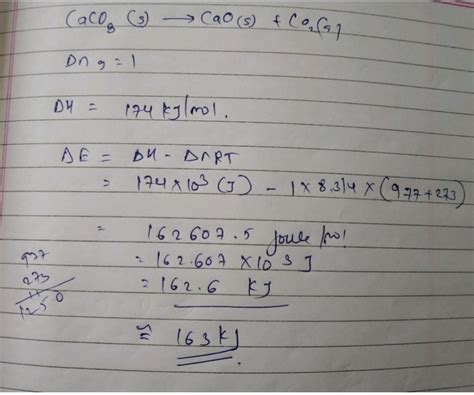 CaCO3 (s) → CaO(s) + CO2(g)
Δng = 1
ΔH = 174 kJ/mol.
ΔE = ΔH - ΔnRT
= 174 × 10³ (J) - 1 × 8.314 × (977+273)
= 162607.5 joule/mol
= 162.607 × 10³ J
= 162.6 KJ
977
273
1250
≅ 163 kJ